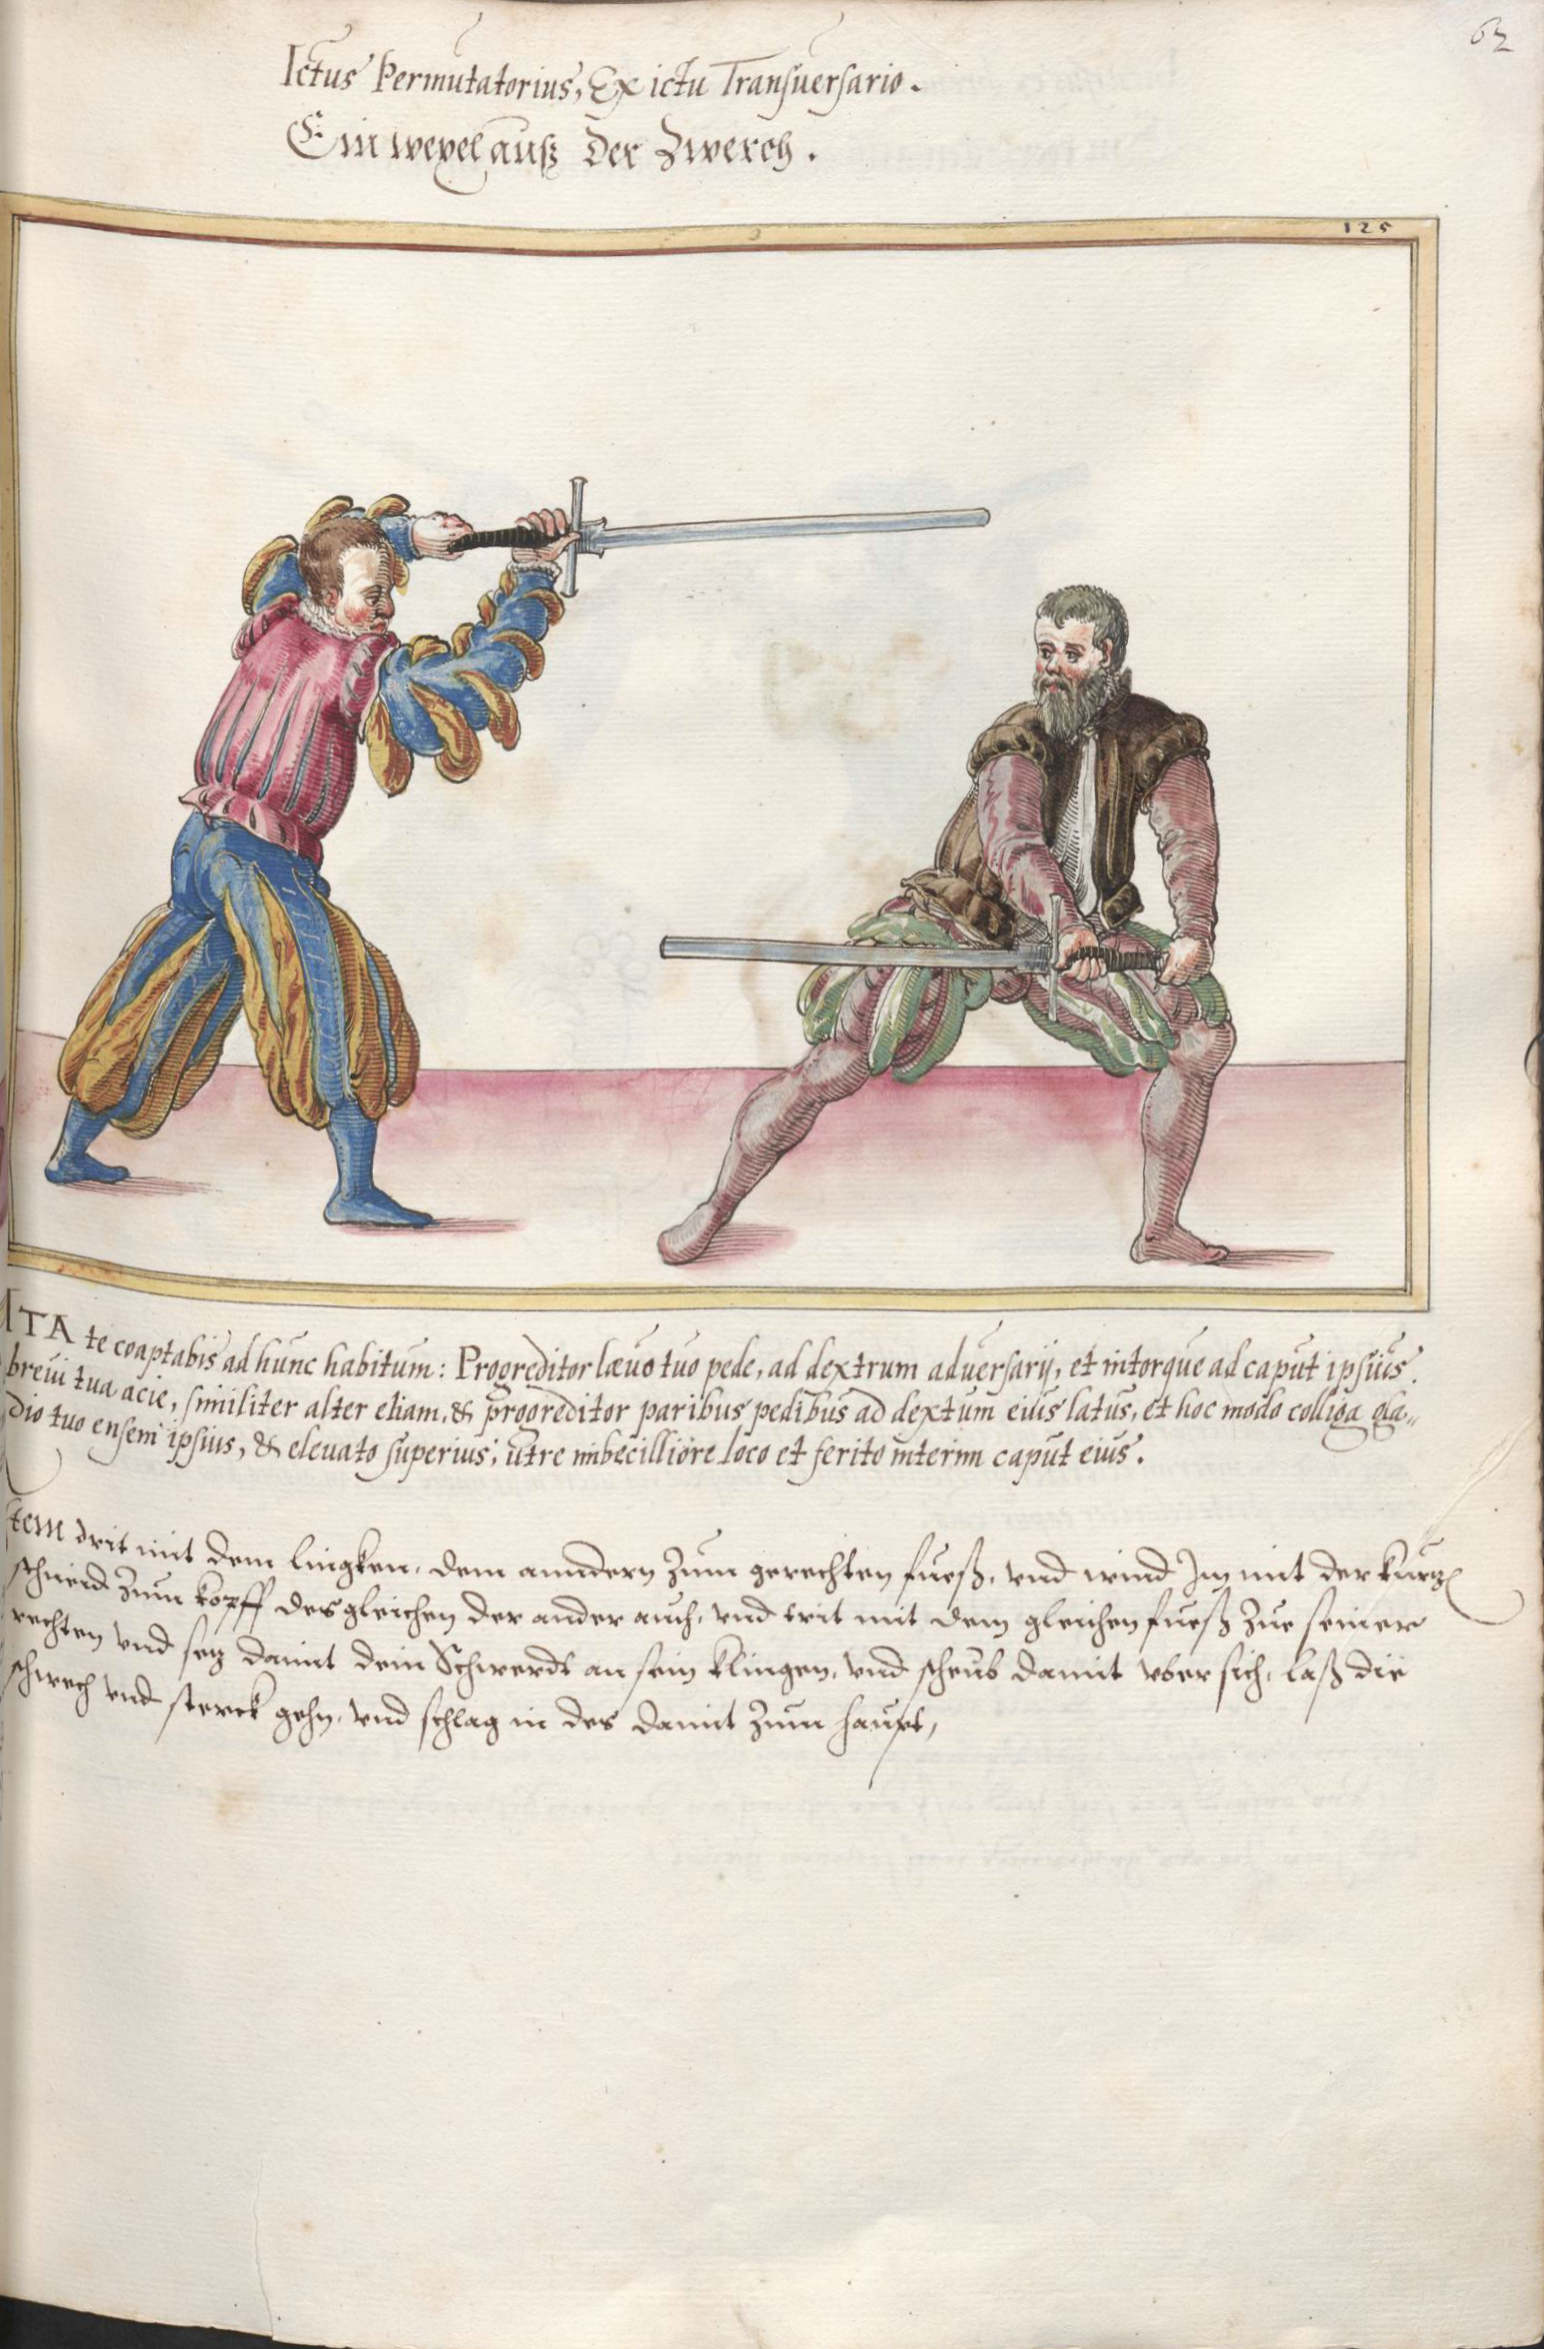 62
Ictus Permutatorius, Ex ictu Transuersario.
Ein wexel auß der Zwerch.
125
ITA te coaptabis ad hunc habitum: Progreditor læuo tuo pede, ad dextrum aduersarij, et intorque ad caput ipsius.
breui tua acie, similiter alter etiam, & progreditor paribus pedibus ad dextum eius latus, et hoc modo colliga gla„
dio tuo ensem ipsius, & eleuato superius, utre imbecilliore loco et ferito interim caput eius.
Item drit mit dem lingken, dem anndern zum gerechten fueß, vnd wind Im mit der kurtz
schneid zum kopff desgleichen der ander auch, vnd trit mit dem gleichen fueß zue seiner
rechten vnd setz damit dein Schwerdt an sein klingen, vnd scheub damit vber sich, laß die
schwech vnd sterck gehn, vnd schlag in des damit zum haupt,